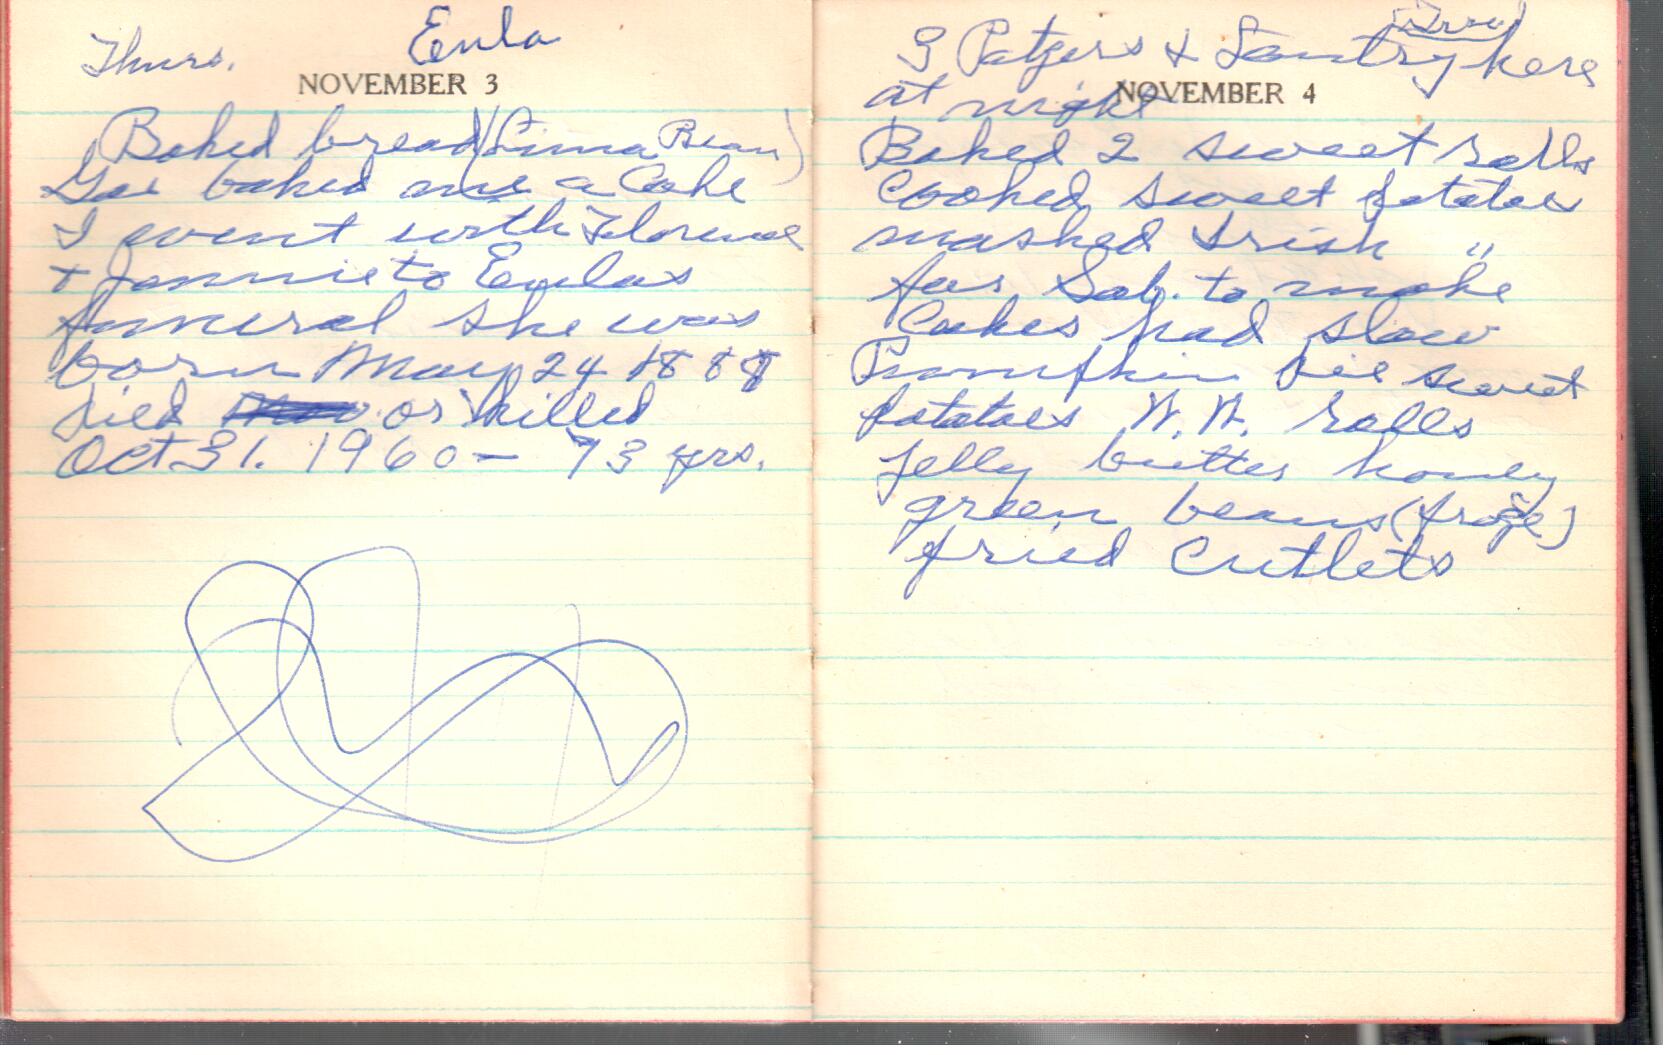 Thurs. Eula
NOVEMBER 3
Baked bread (Lima Bean)
baked me a Cake
I went with Florence
+ Jennie to Eulas
funeral she was
born May 24 1888
died or killed
Oct 31. 1960 - 73 yrs.
3 & here
at night
NOVEMBER 4
Baked 2 sweet rolls
Cooked sweet potatoes
mashed Irish "
for Sab. to make
Cakes had slaw
Pumpkin Pie sweet
potatoes W.W. rolls
Jelly butter honey
green beans (froze)
fried Cutlets